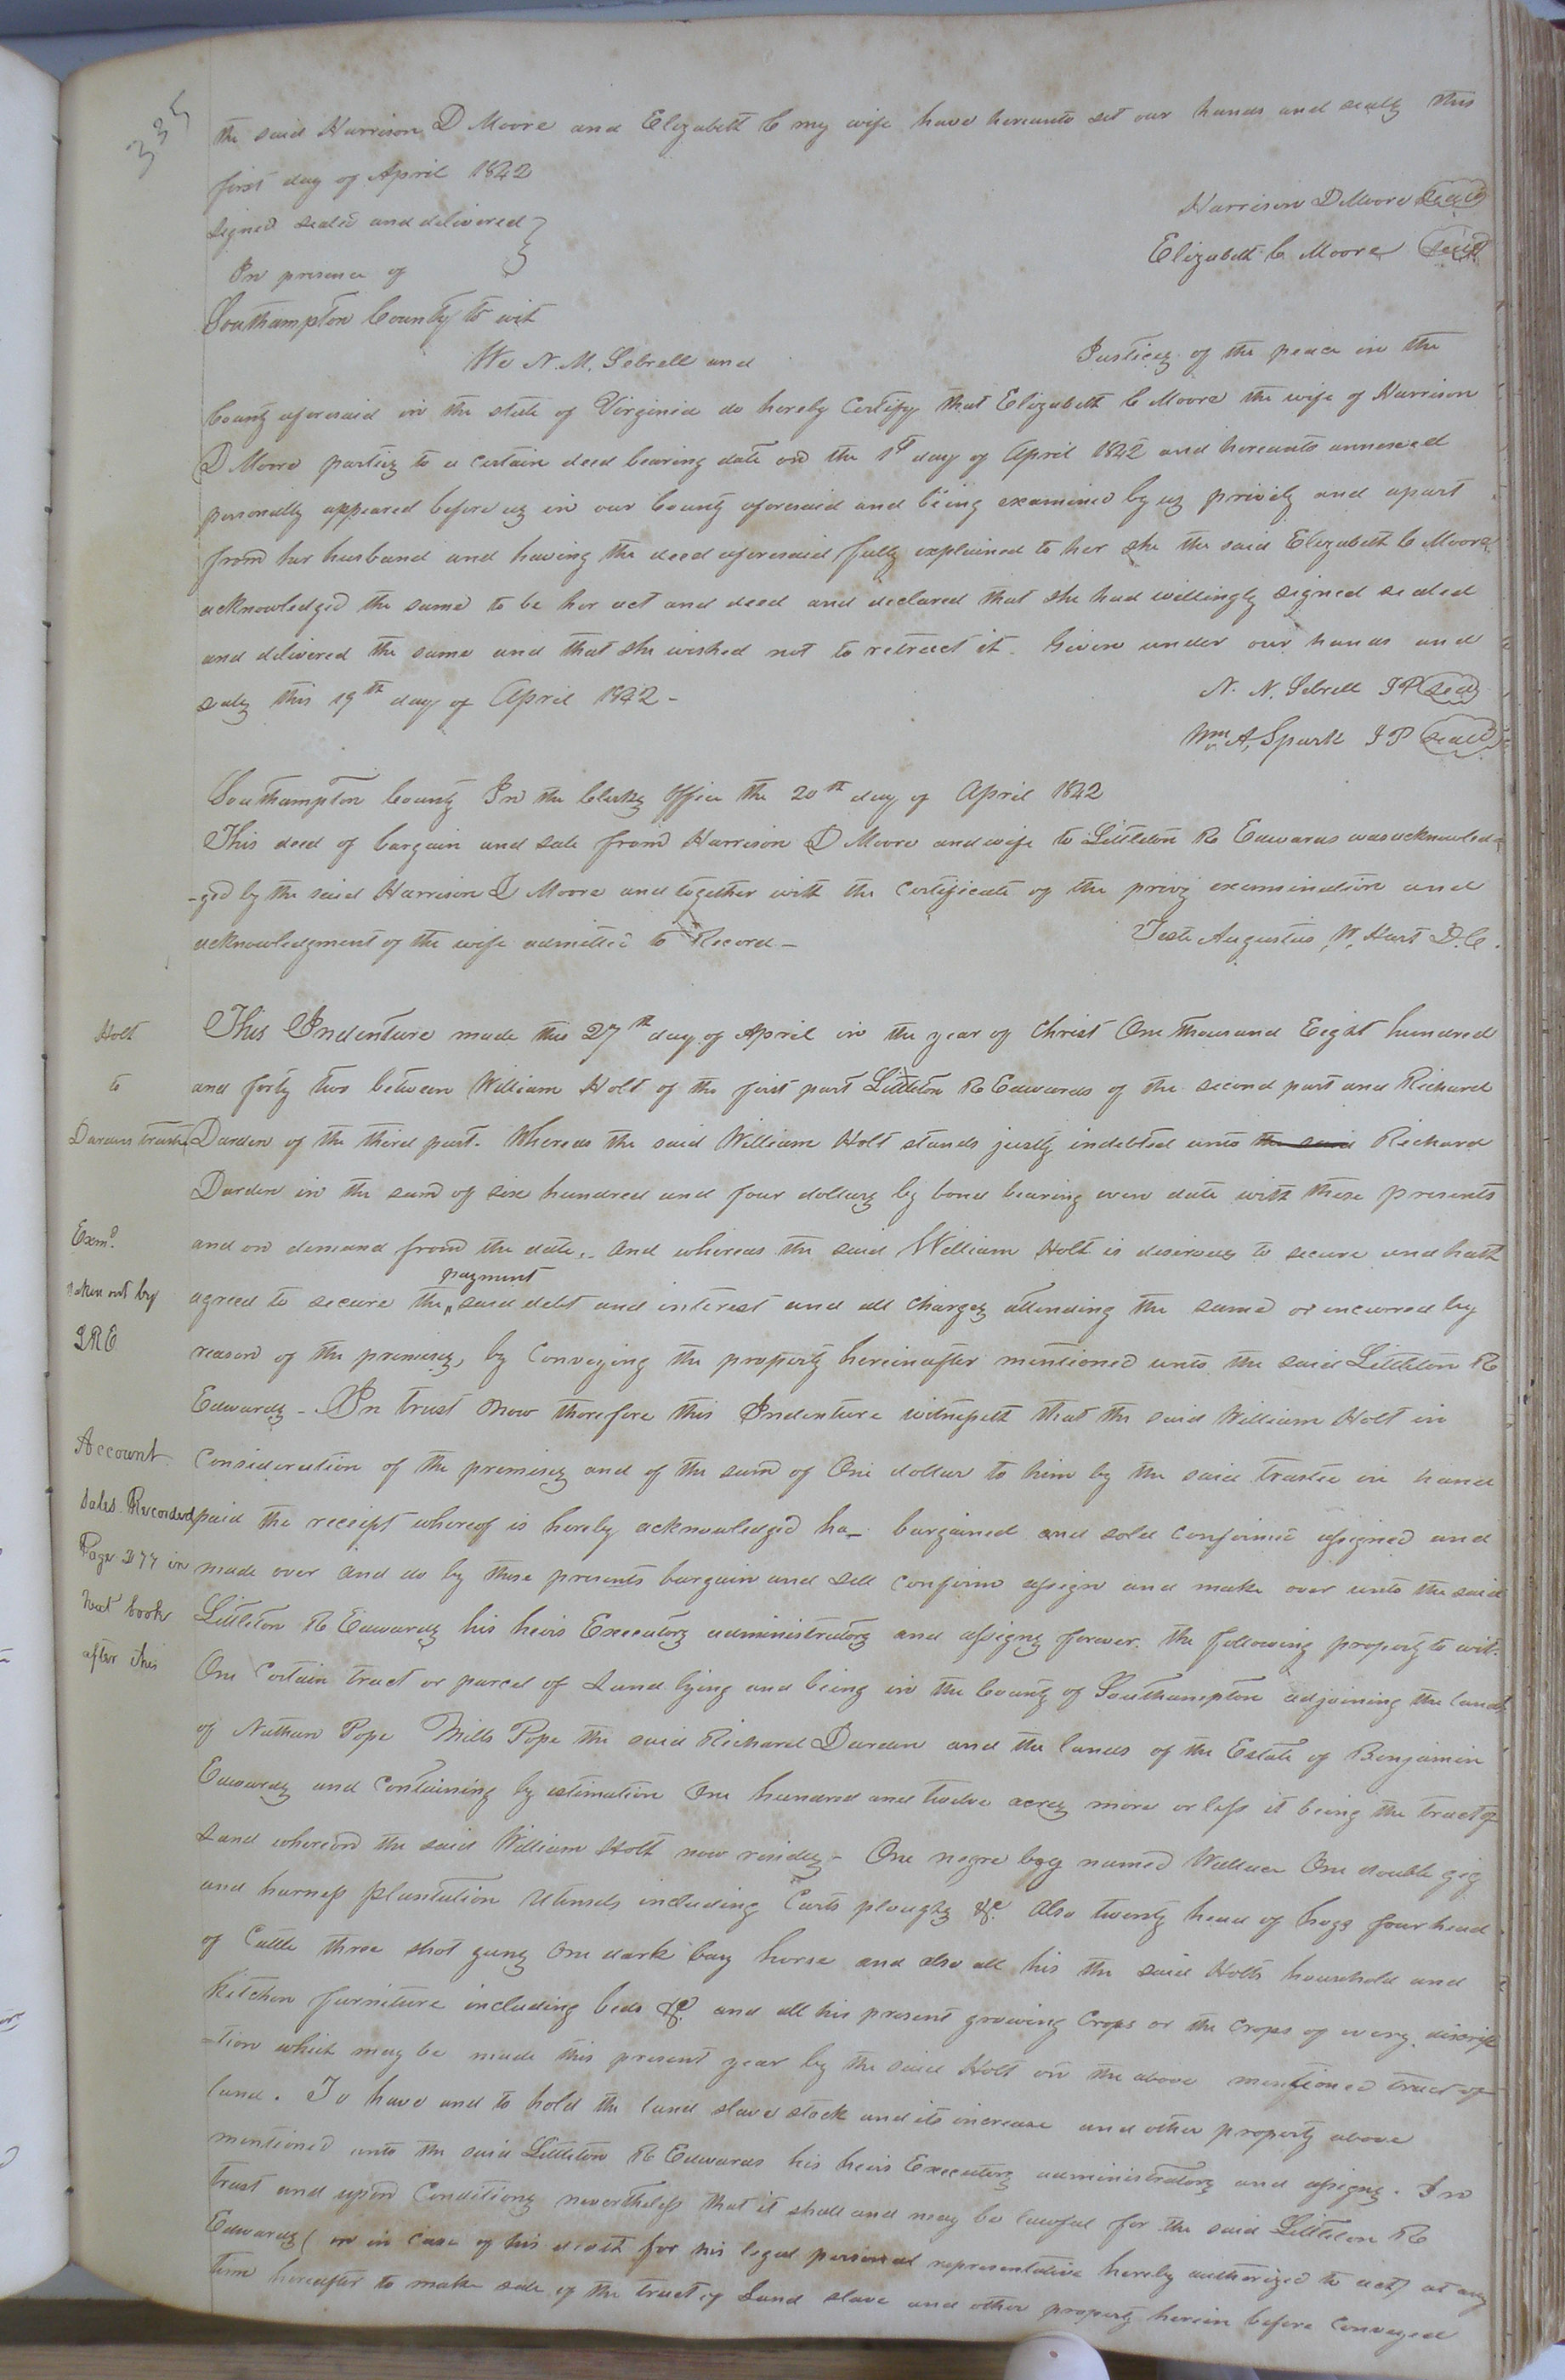 335
the said Harrison D Moore and Elizabeth C my wife have hereunto set our hands and seals this
first day of April 1842
Signed sealed and delivered }
In presence of
Harrison D Moore seal
Elizabeth C Moore seal
Southampton County to wit
We N. M. Sebrell and Justices of the peace in the
County aforesaid in the state of Virginia do hereby Certify that Elizabeth C Moore the wife of Harrison
D Moore parties to a certain deed bearing date on the 1st day of April 1842 and hereunto annexed
personally appeared before us in our County aforesaid and being examined by us privily and apart
from her husband and having the deed aforesaid fully explained to her she the said Elizabeth C Moore
acknowledged the same to be her act and deed and declared that she had willingly signed sealed
and delivered the same and that she wished not to retract it. Given under our hands and
seals this 19th day of April 1842 -
N. N. Sebrell JP seal
Wm A, Spark JP seal
Southampton County In the Clerks Office the 20th day of April 1842
This deed of bargain and sale from Harrison D Moore and wife to Littleton R Edwards was acknowled=
-ged by the said Harrison D Moore and together with the certificate of the privy examination and
acknowledgment of the wife admitted to Record -
Teste Augustus, W, Hart D.C.
Holt
to
Dardens trustee
Exmd.
taken out by
LRE
Account
Sales Recorded
Page 377 in
next book
after this
This Indenture made this 27th day of April in the year of Christ One thousand Eight hundred
and forty two between William Holt of the first part Littleton R Edwards of the second part and Richard
Darden of the third part. Whereas the said William Holt stands justly indebted unto the said Richard
Darden in the sum of six hundred and four dollars by bond bearing even date with these presents
and on demand from the date,. And whereas the said William Holt is desirous to secure and hath
agreed to secure the payment said debt and interest and all charges attending the same or incurred by
reason of the premises, by Conveying the property hereinafter mentioned unto the said Littleton R
Edwards - In trust Now therefore this Indenture witnesseth that the said William Holt in
Consideration of the premises and of the sum of One dollar to him by the said trustee in hand
paid the receipt whereof is hereby acknowledged ha_ bargained and sold confirmed assigned and
made over and do by these presents bargain and sell confirm assign and make over unto the said
Littleton R Edwards his heirs Executors administrators and assigns forever. the following property to wit.
One Certain tract or parcel of Land lying and being in the County of Southampton adjoining the lands
of Nathan Pope Mills Pope the said Richard Darden and the lands of the Estate of Benjamin
Edwards and Containing by estimation One hundred and twelve acres more or less it being the tract of
Land whereon the said William Holt now resides - One negro boy named Wallace One double gig
and harness plantation Utensils including Carts ploughs &c. Also twenty head of hogs four head
of Cattle three shot guns One dark bay horse and also all his the said Holts household and
Kitchen furniture including beds &c. and all his present growing Crops or the crops of every discrip
-tion which may be made this present year by the said Holt on the above mentioned tract of
land. To have and to hold the land slave stock and its increase and other property above
mentioned unto the said Littleton R Edwards his heirs Executors administrators and assigns. In
trust and upon Conditions nevertheless that it shall and may be lawful for the said Littleton R
Edwards (or in Case of his death for his legal personal representative hereby authorized to act) at any
time hereafter to make sale of the tract of Land slave and other property herein before Conveyed